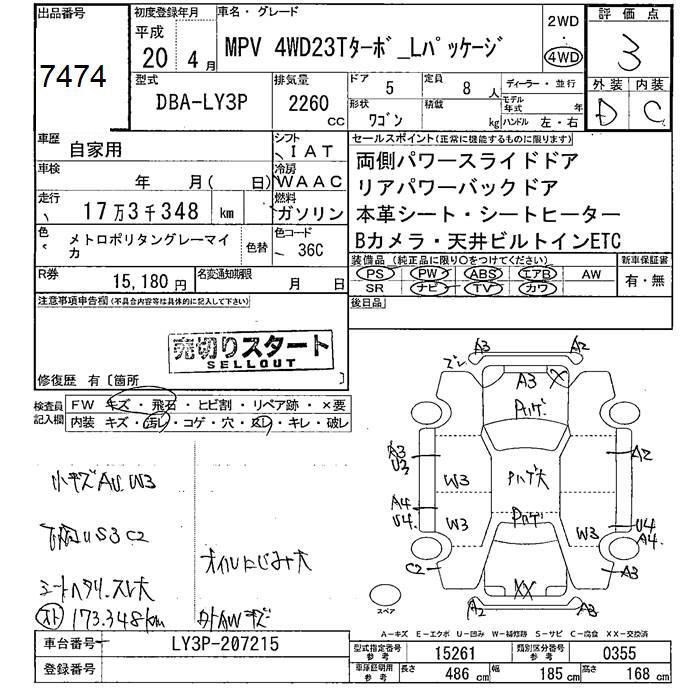 出品番号
7474
初度登録年月
平成
20 4月
車名・グレード
MPV 4WD23Tターボ_Lパッケージ
2WD
・
4WD
評価点
3
外装 内装
D C
型式
DBA-LY3P
排気量
2260
CC
ドア
5
定員
8人
ディーラー・並行
形状
ワゴン
積載
kg
モデル年式
年
ハンドル 左・右
車歴
自家用
シフト
IAT
車検
年 月( 日)
冷房
WAAC
走行
17万3千348 km
燃料
ガソリン
色
メトロポリタングレーマイカ
色替
色コード
36C
R券
15,180円
名変通知期限
月 日
セールスポイント(正常に機能するものに限ります)
両側パワースライドドア
リアパワーバックドア
本革シート・シートヒーター
Bカメラ・天井ビルトインETC
装備品 (純正品に限り○をつけてください)
新車保証書
PS PW ABS エアB AW
SR ナビ TV カワ
有・無
後日品
注意事項申告欄(不具合内容等は具体的に記入して下さい)
売切りスタート
SELLOUT
修復歴 有〔箇所 〕
検査員記入欄
FW キズ・飛石・ヒビ割・リペア跡・×要
内装 キズ・汚レ・コゲ・穴・スレ・キレ・破レ
小キズAU W3
下廻りUS3C2
オイルにじみ大
シートヘタリ・スレ大
メト 173.348km
外AWキズ
A3 A2
ズレ
A3 X
A3
U3
A2
W3
W3
A4
U4
W3
U4
A4
C2
A3
XX
A2 A3
スペア
A－キズ E－エクボ U－凹み W－補修跡 S－サビ C－腐食 XX－交換済
車台番号
LY3P-207215
登録番号
型式指定番号
参考
15261
類別区分番号
参考
0355
車庫証明用
参考
長さ
486 cm
幅
185 cm
高さ
168 cm